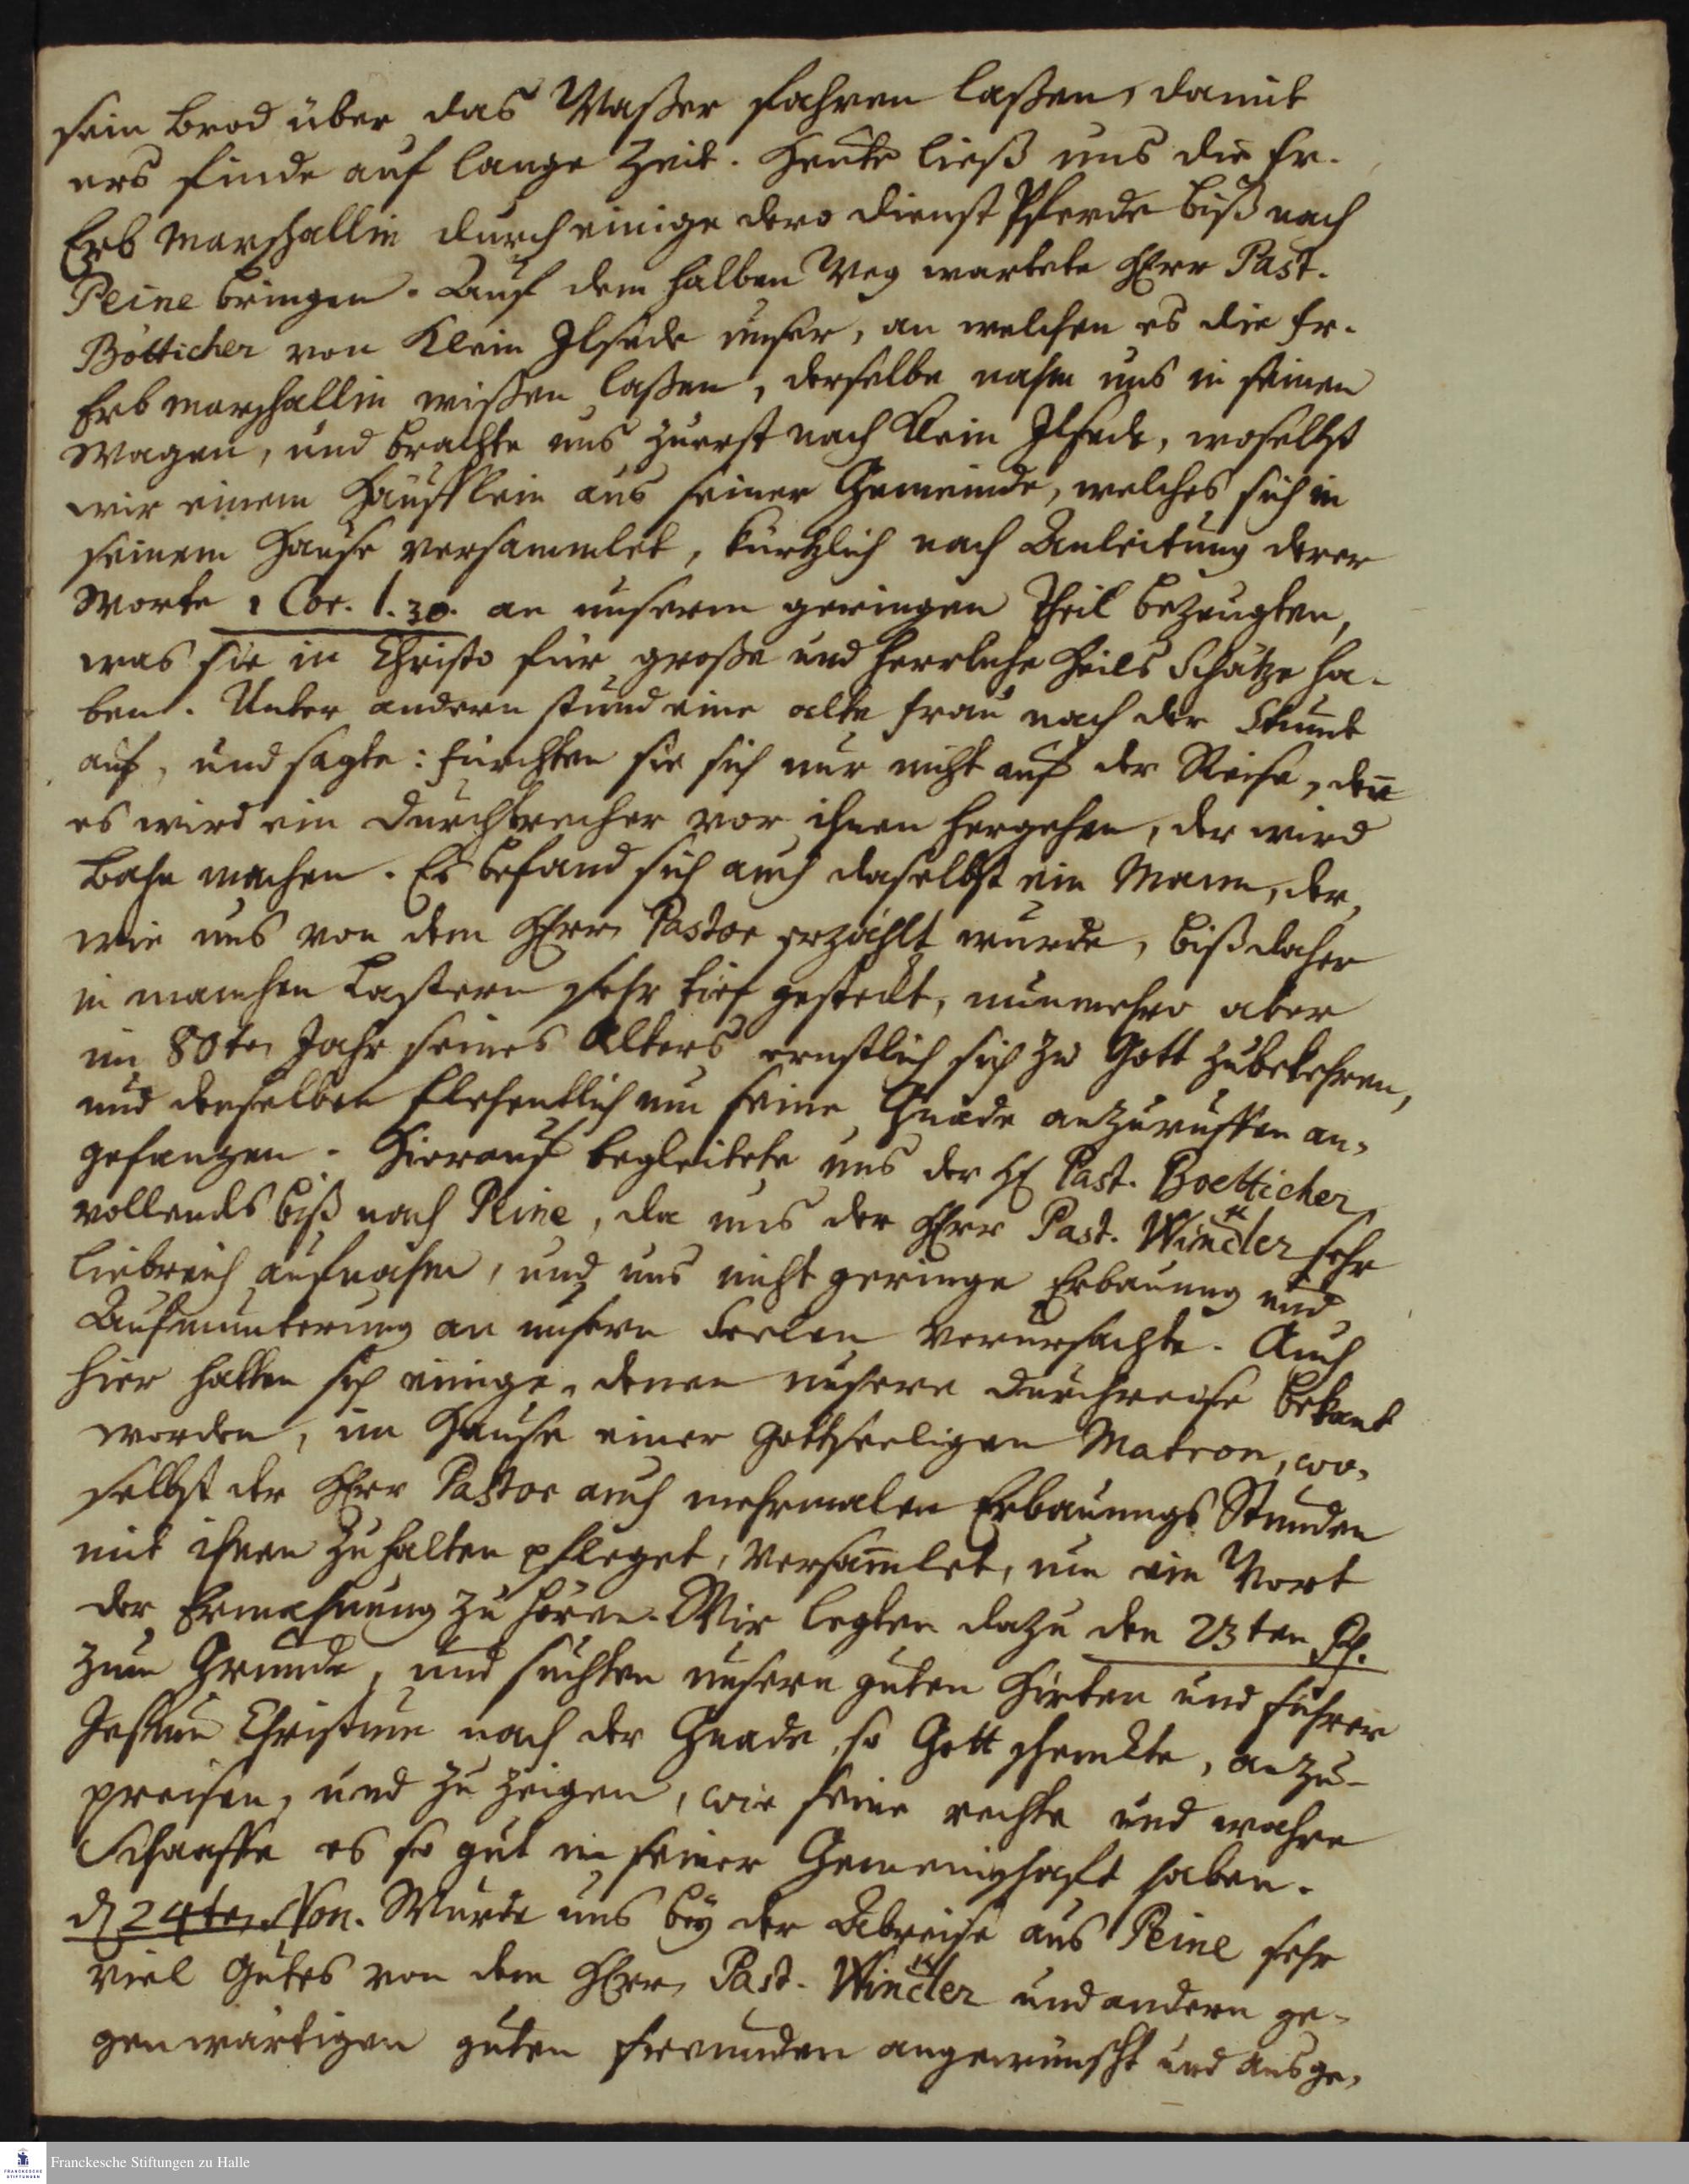 sein Brod über das Waßer fahren laßen, damit
ers finde auf lange Zeit. Heute ließ uns die Fr.
Erb Marschallin durch einige dero Dienst Pferde biß nach
Peine bringen. Auf dem halben Weg wartete Herr Past.
Bötticher von Klein Ilsede unser, an welchen es die Fr.
Erb marschallin wißen laßen, derselbe nahm uns in seinen
Wagen, und brachte uns zuerst nach Klein Ilsede, woselbst
wir einem Häufflein aus seiner Gemeinde, welches sich in
seinem Hause versammlet, kürtzlich nach Anleitung derer
Worte 1 Cor. 1.30. an unserm geringen Theil bezeugten,
was sie in Christo für große und herrliche Heils Schätze ha-
ben. Unter andern stund eine alte Frau nach der Stund
auf, und sagte: fürchten sie sich nur nicht auf der Reise, deñ
es wird ein Durchbrecher vor ihnen hergehen, der wird
Bahn machen. Es befand sich auch daselbst ein Mann, der,
wie uns von dem Herrn Pastor erzählt wurde, biß daher
in manchen Lastern sehr tief gesteckt, nunmehro aber
im 80ten Jahr seines Alters ernstlich sich zu Gott zubekehren,
und denselben flehentlich um seine Gnade anzuruffen an-
gefangen. Hierauf begleitete uns der H. Past. Boetticher
vollends biß nach Peine, da uns der Herr Past. Winckler sehr
liebreich aufnahm, und uns nicht geringe Erbauung und
Aufmunterung an unsern Seelen verursachte. Auch
hier hatten sich einige, denen unsere Durchreise bekant
worden, im Hause einer gottseeligen Matron, wo-
selbst der Herr Pastor auch mehrmalen Erbauungs Stunden
mit ihnen zu halten pfleget, versam̃let, um ein Wort
der Ermahnung zu hören. Wir legten dazu den 23ten Ps.
zum Grunde, und suchten unsern guten Hirten und Führer
Jesum Christum nach der Gnade, so Gott schenckte, anzu-
preisen, und zu zeigen, wie seine rechte und wahre
Schaaffe es so gut in seiner Gemeinschaft haben.
d. 24ten Nov. Wurde uns bey der Abreise aus Peine sehr
viel Gutes von dem Herrn Past. Winckler und andern ge-
genwärtigen guten Freunden angewünscht und ausge-
Franckesche Stiftungen zu Halle